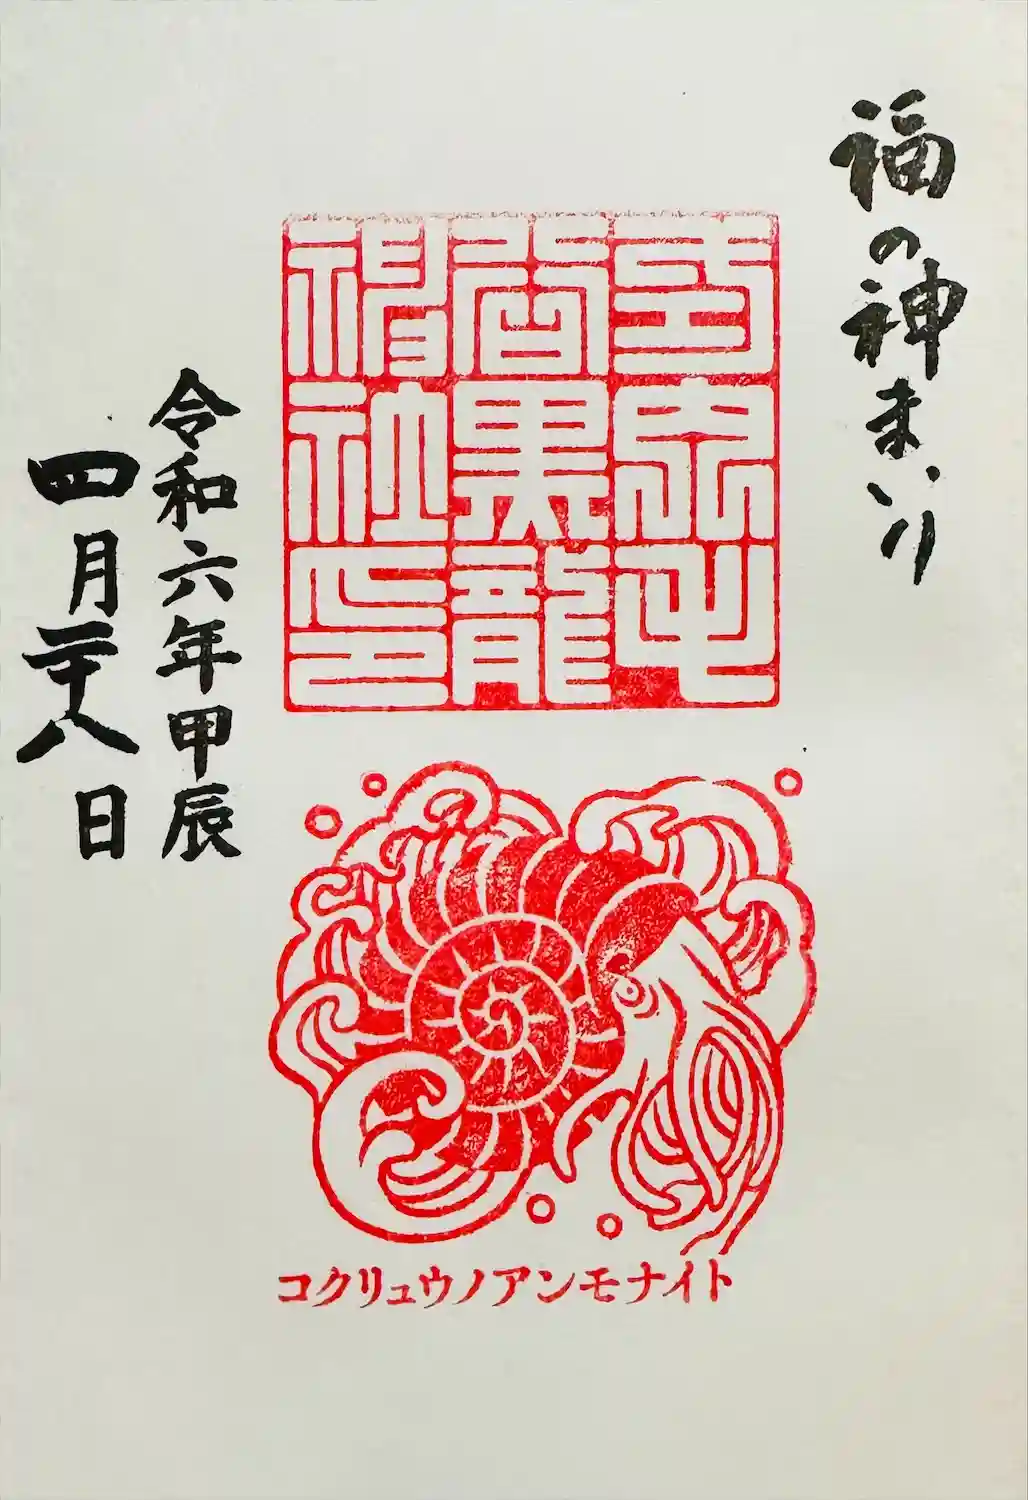 福の神まいり
毛
谷黒龍
神社印
令和六年甲辰
四月二十八日
コクリュウノアンモナイト